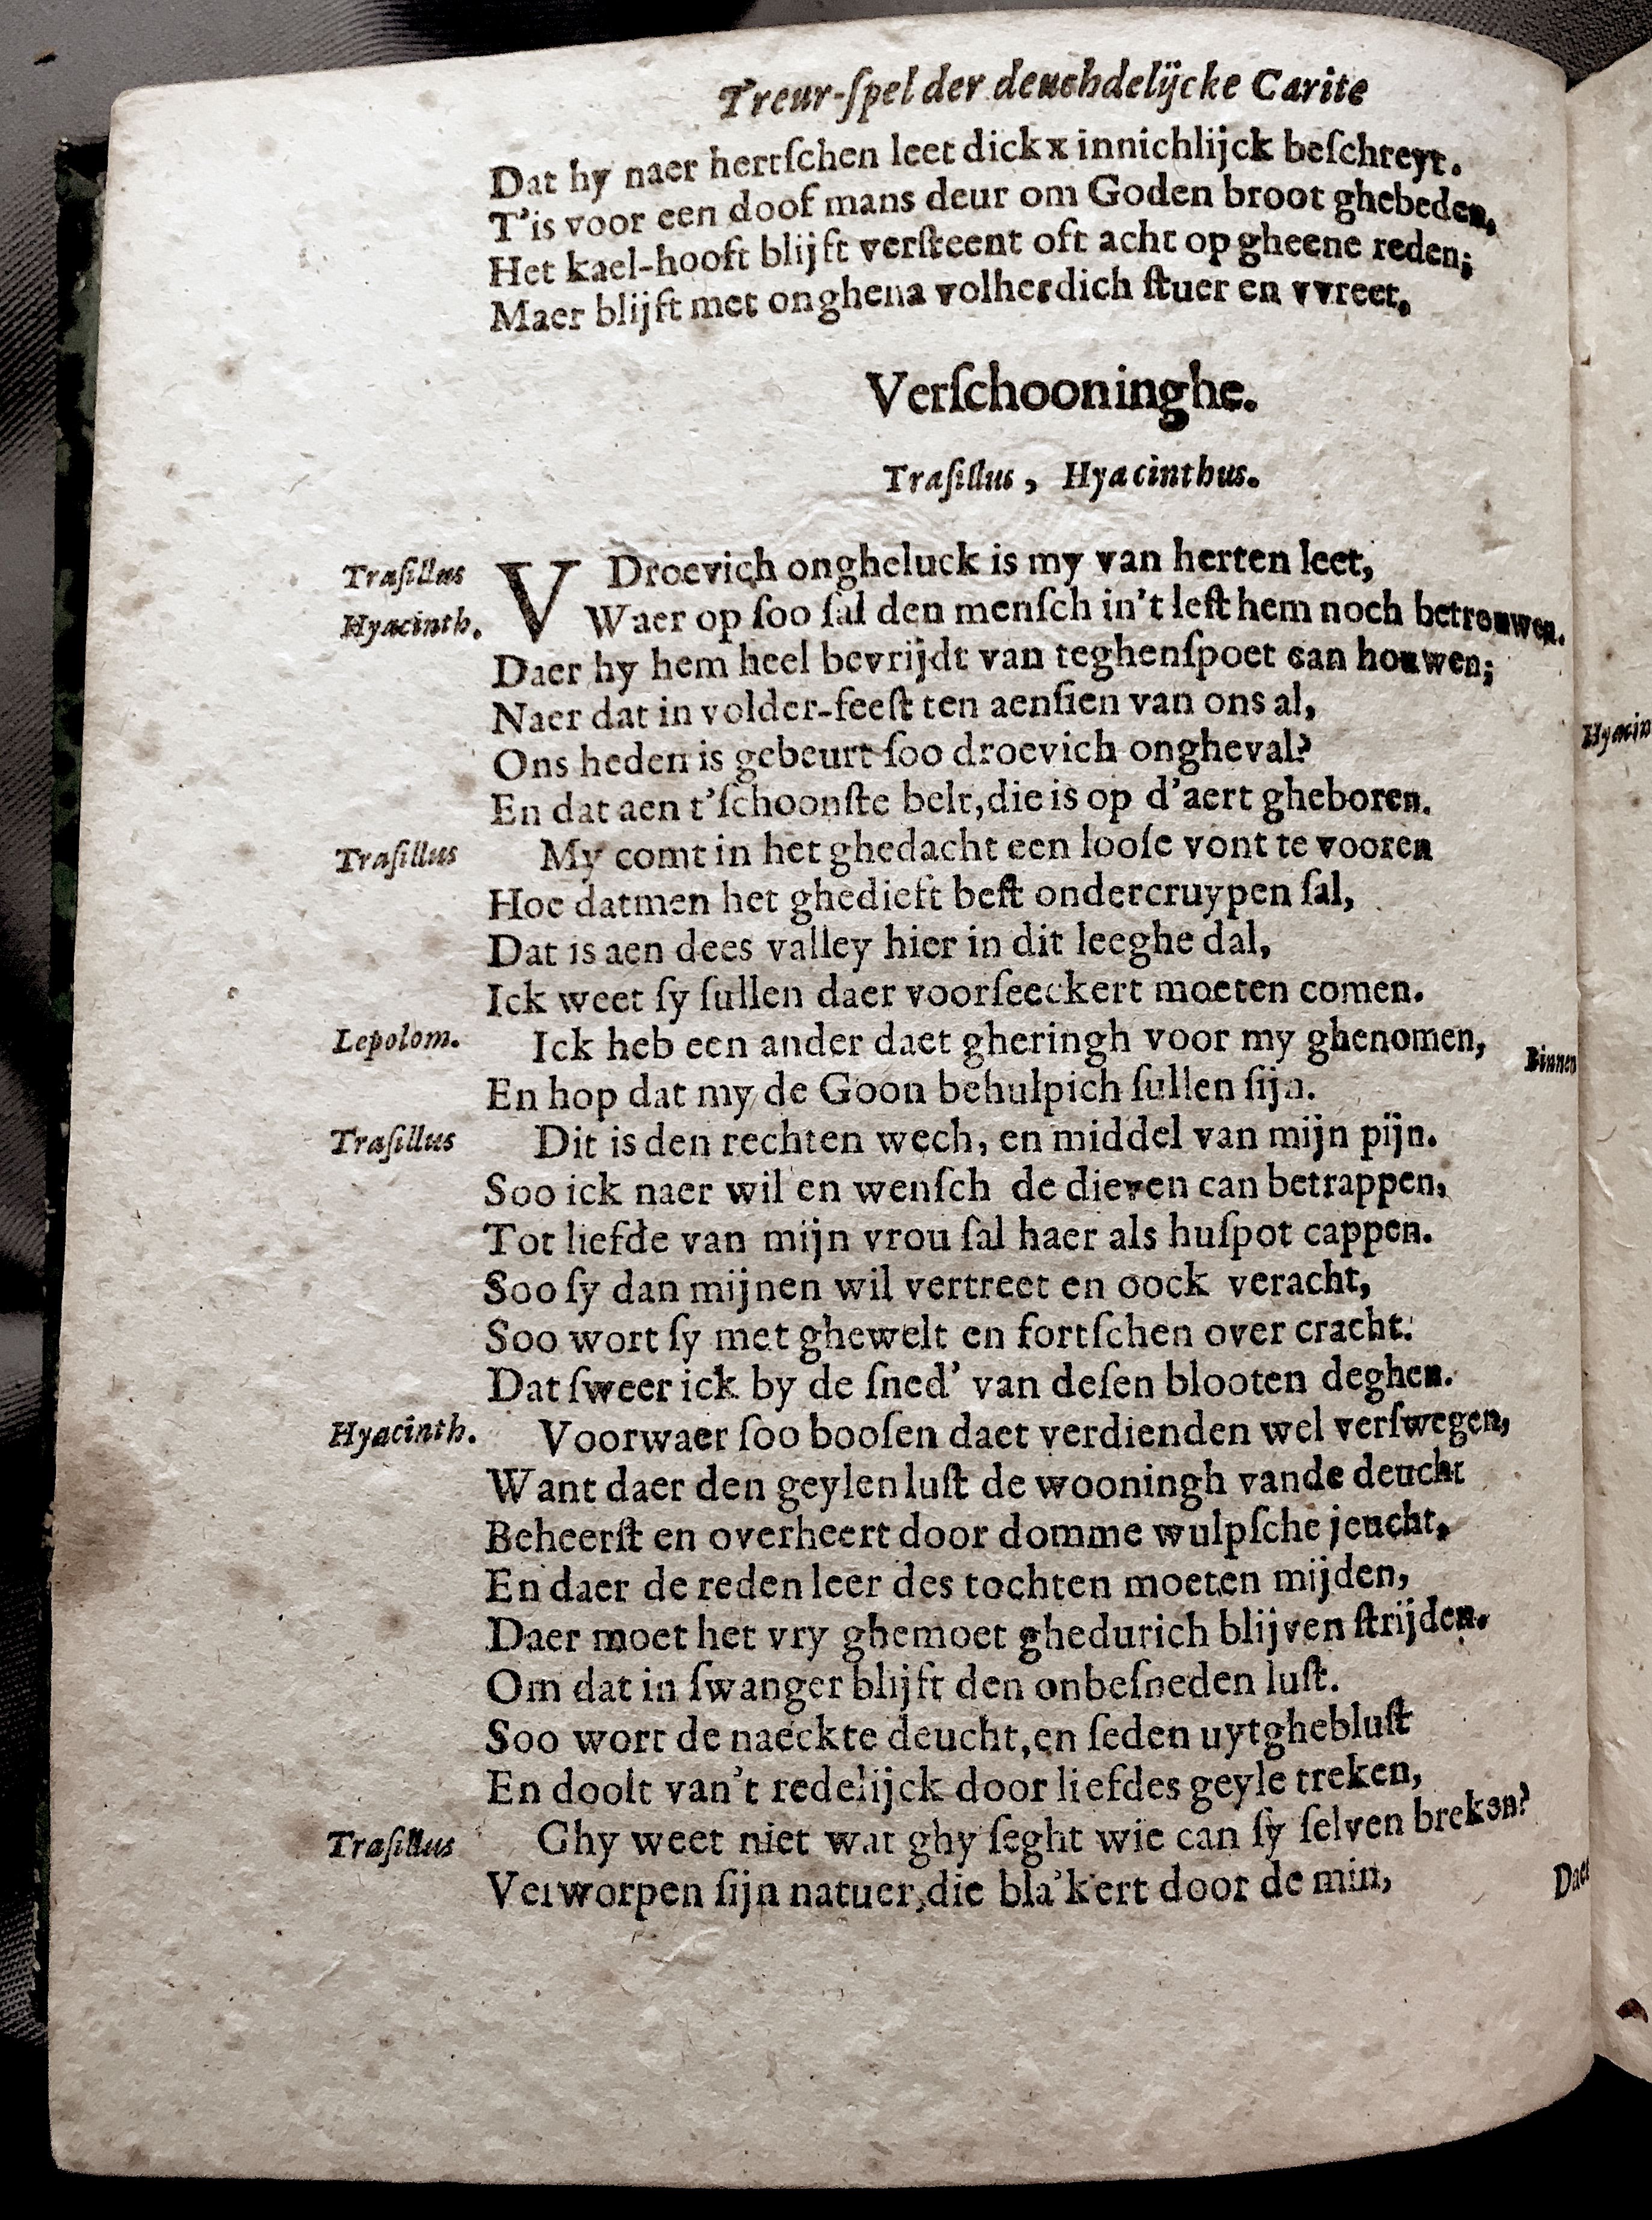 Treur-ſpel der deuchdelijcke Carite
Dat hy naer hertſchen leet dickx innichlijck beſchreyt.
T'is voor een doof mans deur om Goden broot ghebeden,
Het kael-hooft blijft verſteent oft acht op gheene reden;
Maer blijft met onghena volherdich ſtuer en vvreet.
Verſchooninghe.
Traſillus, Hyacinthus.
Traſillus V Droevich ongheluck is my van herten leet,
Hyacinth. Waer op ſoo ſal den menſch in't leſt hem noch betrouwen.
Daer hy hem heel bevrijdt van teghenſpoet can houwen;
Naer dat in volder-feeſt ten aenſien van ons al,
Ons heden is gebeurt ſoo droevich ongheval?
En dat aen t'ſchoonſte belt, die is op d'aert gheboren.
Traſillus My comt in het ghedacht een looſe vont te vooren
Hoe datmen het ghedieft beſt ondercruypen ſal,
Dat is aen dees valley hier in dit leeghe dal,
Ick weet ſy ſullen daer voorſeeckert moeten comen.
Lepolom. Ick heb een ander daet gheringh voor my ghenomen,
En hop dat my de Goon behulpich ſullen ſijn.
Traſillus Dit is den rechten wech, en middel van mijn pijn.
Soo ick naer wil en wenſch de dieven can betrappen,
Tot liefde van mijn vrou ſal haer als huſpot cappen.
Soo ſy dan mijnen wil vertreet en oock veracht,
Soo wort ſy met ghewelt en fortſchen over cracht.
Dat ſweer ick by de ſned' van deſen blooten deghen.
Hyacinth. Voorwaer ſoo booſen daet verdienden wel verſwegen,
Want daer den geylen luſt de wooningh vande deucht
Beheerſt en overheert door domme wulpſche jeucht,
En daer de reden leer des tochten moeten mijden,
Daer moet het vry ghemoet ghedurich blijven ſtrijden.
Om dat in ſwanger blijft den onbeſneden luſt.
Soo wort de naeckte deucht, en ſeden uytghebluſt
En doolt van't redelijck door liefdes geyle treken,
Traſillus Ghy weet niet wat ghy ſeght wie can ſy ſelven breken?
Verworpen ſijn natuer, die bla'kert door de min,
Hyacin
Binnen